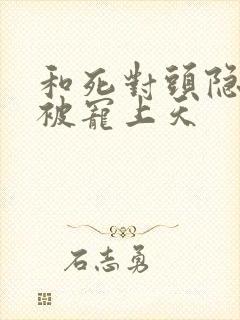 和死對頭隐
被寵上天
石志勇